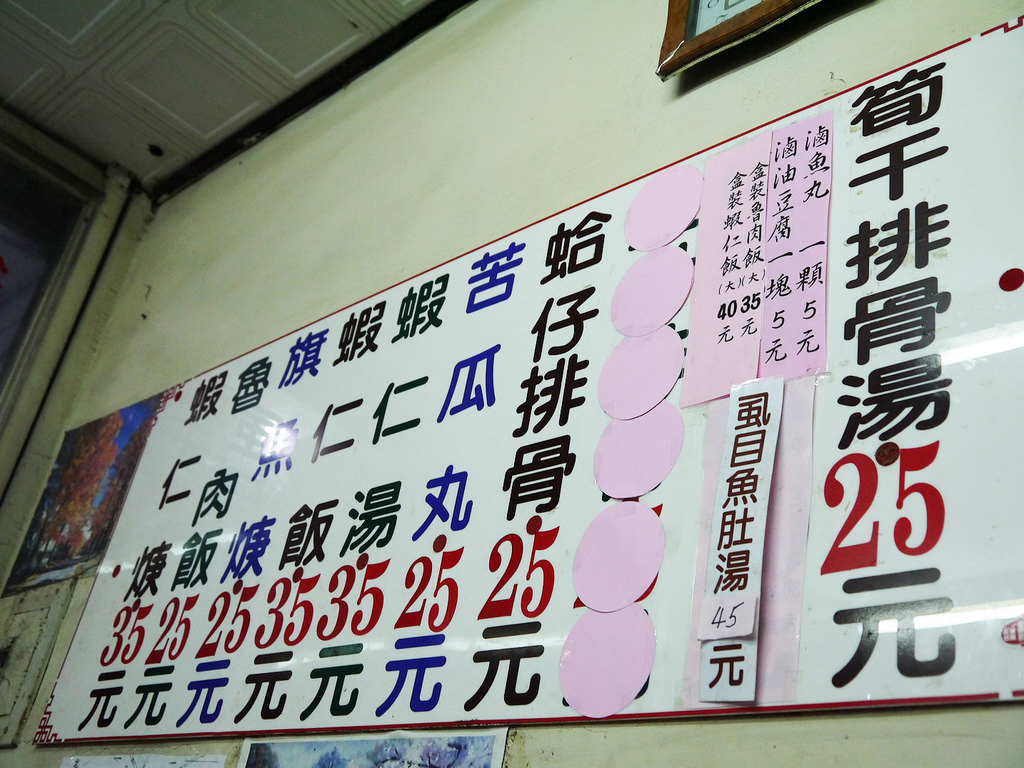 筍干排骨湯25元
滷魚丸 一顆5元
滷油豆腐一塊5元
盒裝魯肉飯(大)35元
盒裝蝦仁飯(大)40元
虱目魚肚湯45元
蛤仔排骨25元
苦瓜丸25元
蝦仁湯35元
蝦仁飯35元
旗魚焿25元
魯肉飯25元
蝦仁焿35元